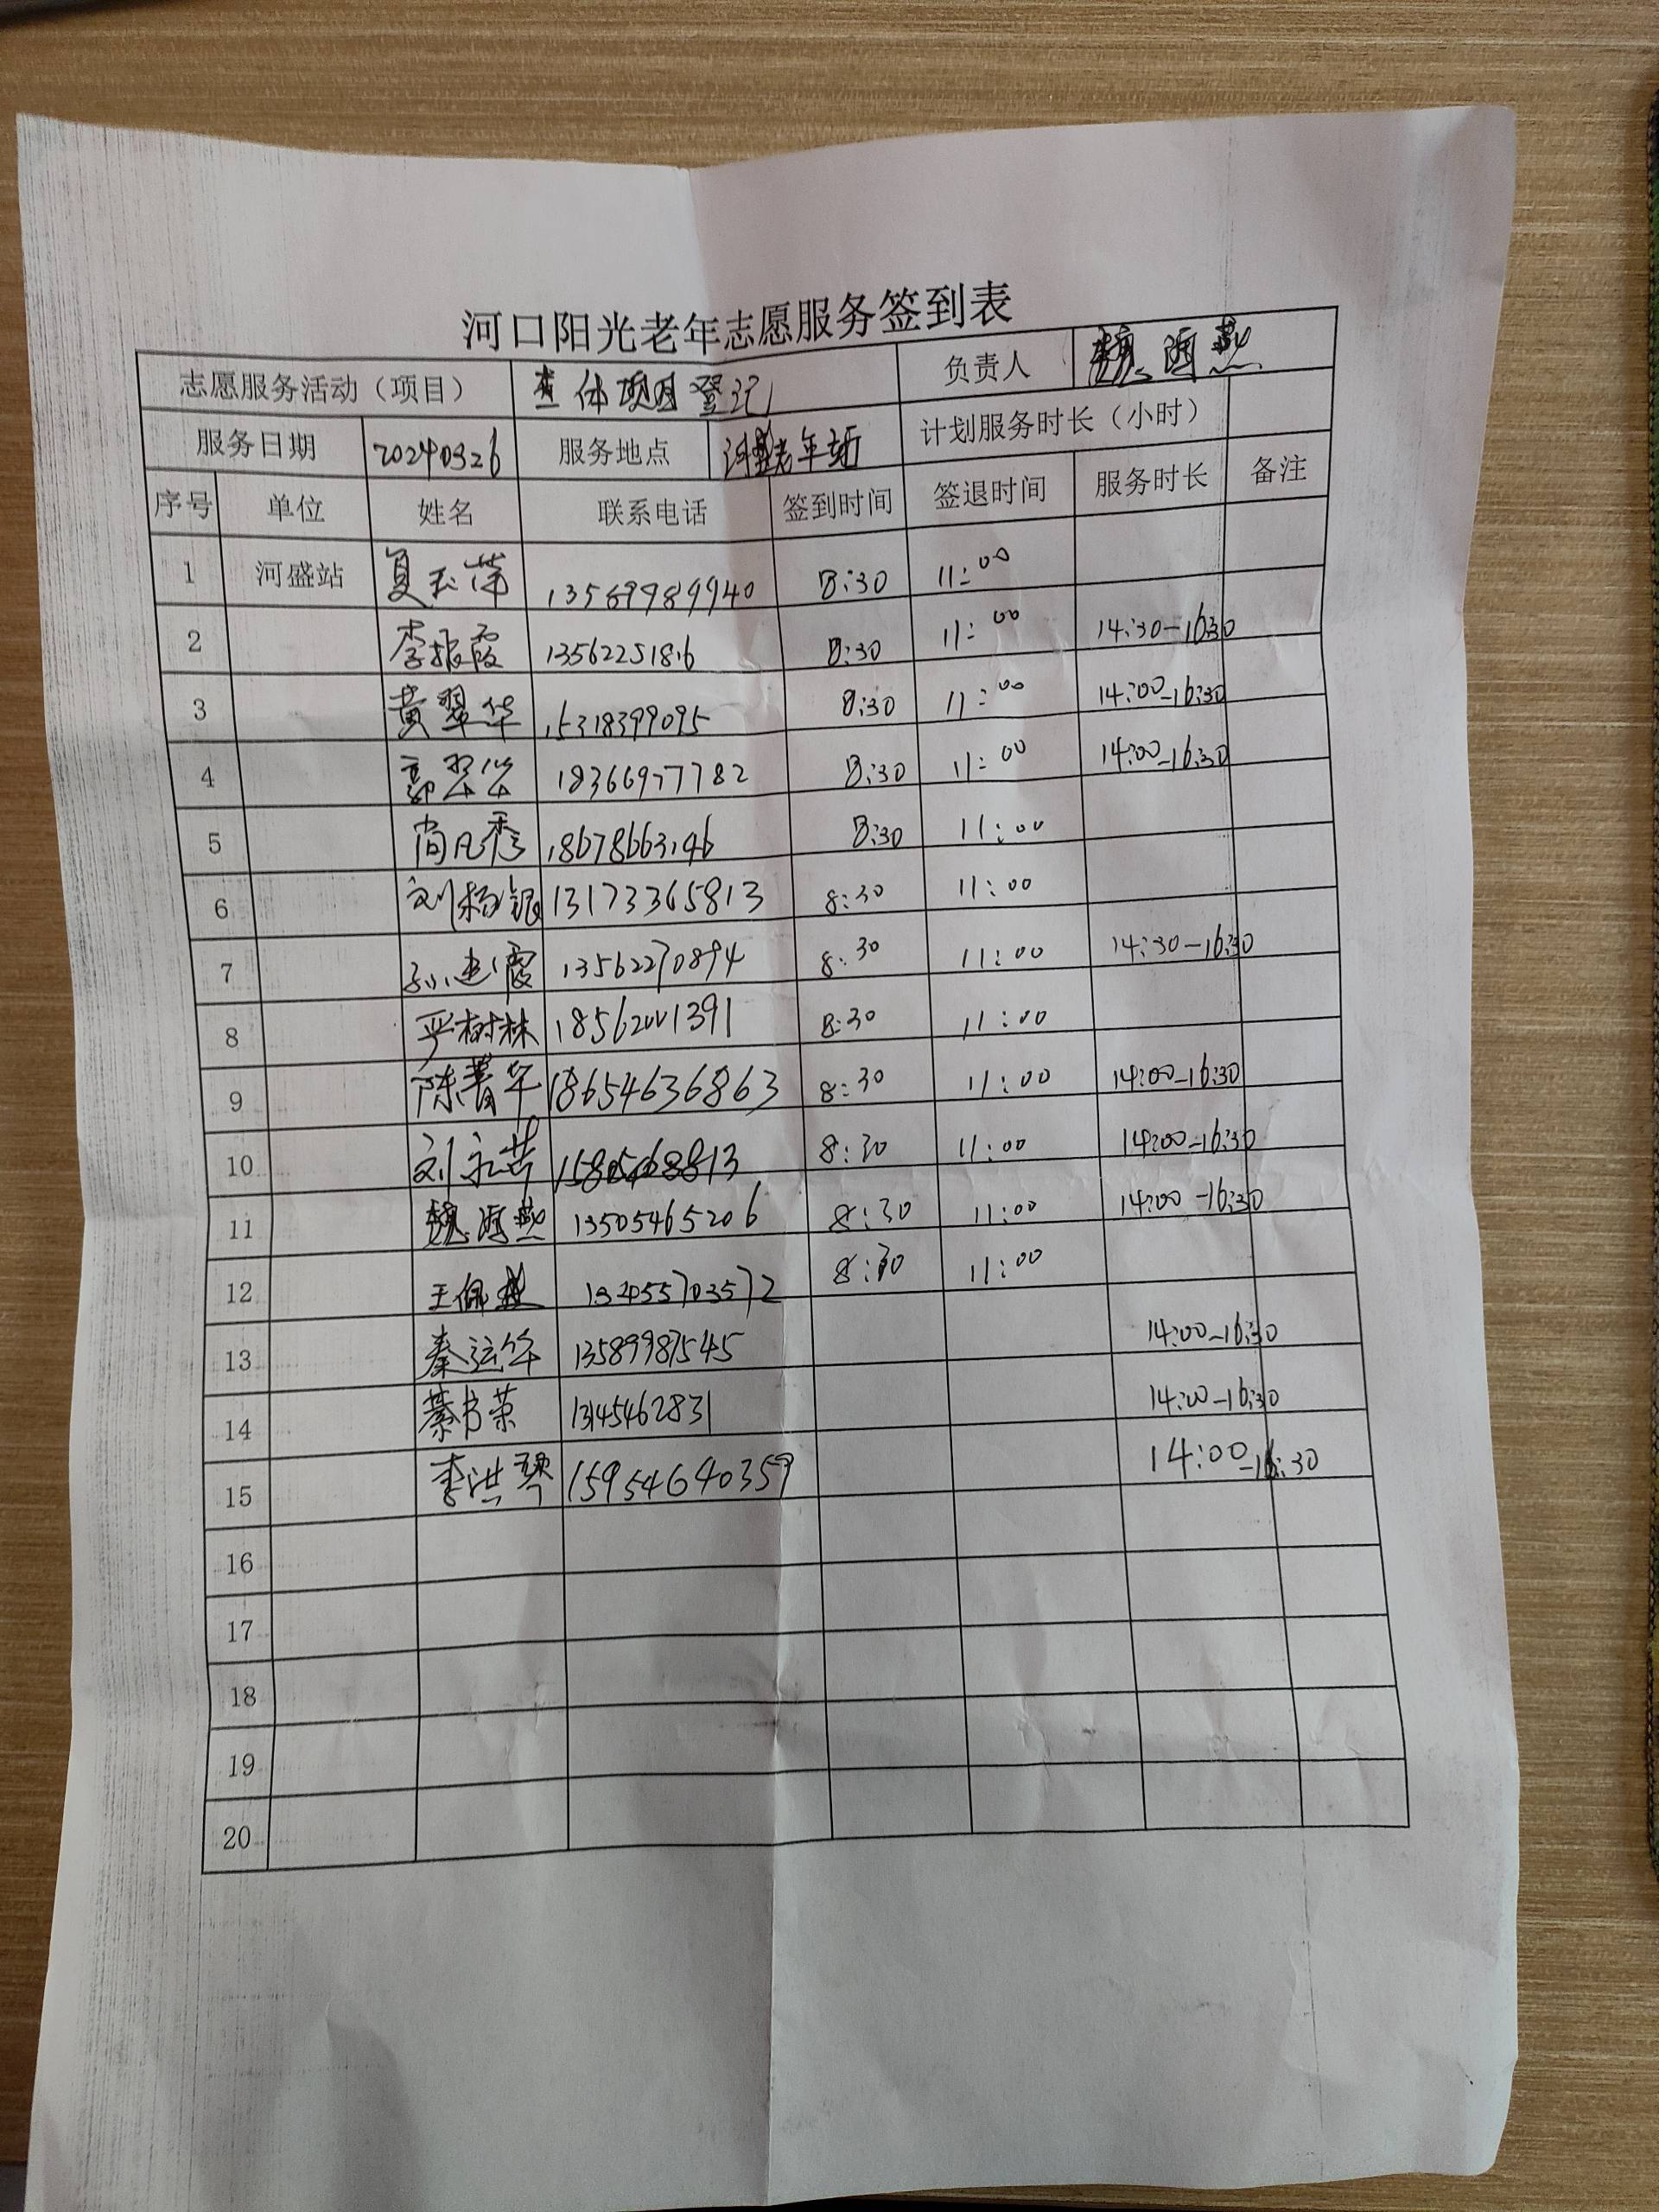 河口阳光老年志愿服务签到表
志愿服务活动（项目） 查体项目登记 负责人 魏海燕
服务日期 20240326 服务地点 河盛老年站 计划服务时长（小时）
序号 单位 姓名 联系电话 签到时间 签退时间 服务时长 备注
1 河盛站 8:30 11:00
2 李振霞 13562251816 8:30 11:00 14:30-16:30
3 黄翠华 15318399095 8:30 11:00 14:00-16:30
4 18366977782 8:30 11:00 14:00-16:30
5 尚凡秀 18678663146 8:30 11:00
6 刘杨银 13173365813 8:30 11:00
7 孙建霞 13562270894 8:30 11:00 14:30-16:30
8 严树林 18562001391 8:30 11:00
9 陈菁华 18654636863 8:30 11:00 14:00-16:30
10 8:30 11:00 14:00-16:30
11 魏海燕 13505465206 8:30 11:00 14:00-16:30
12 8:30 11:00
13 秦运华 13589987545 14:00-16:30
14 綦书荣 13145462831 14:00-16:30
15 李洪琴 15954640359 14:00-16:30
16
17
18
19
20